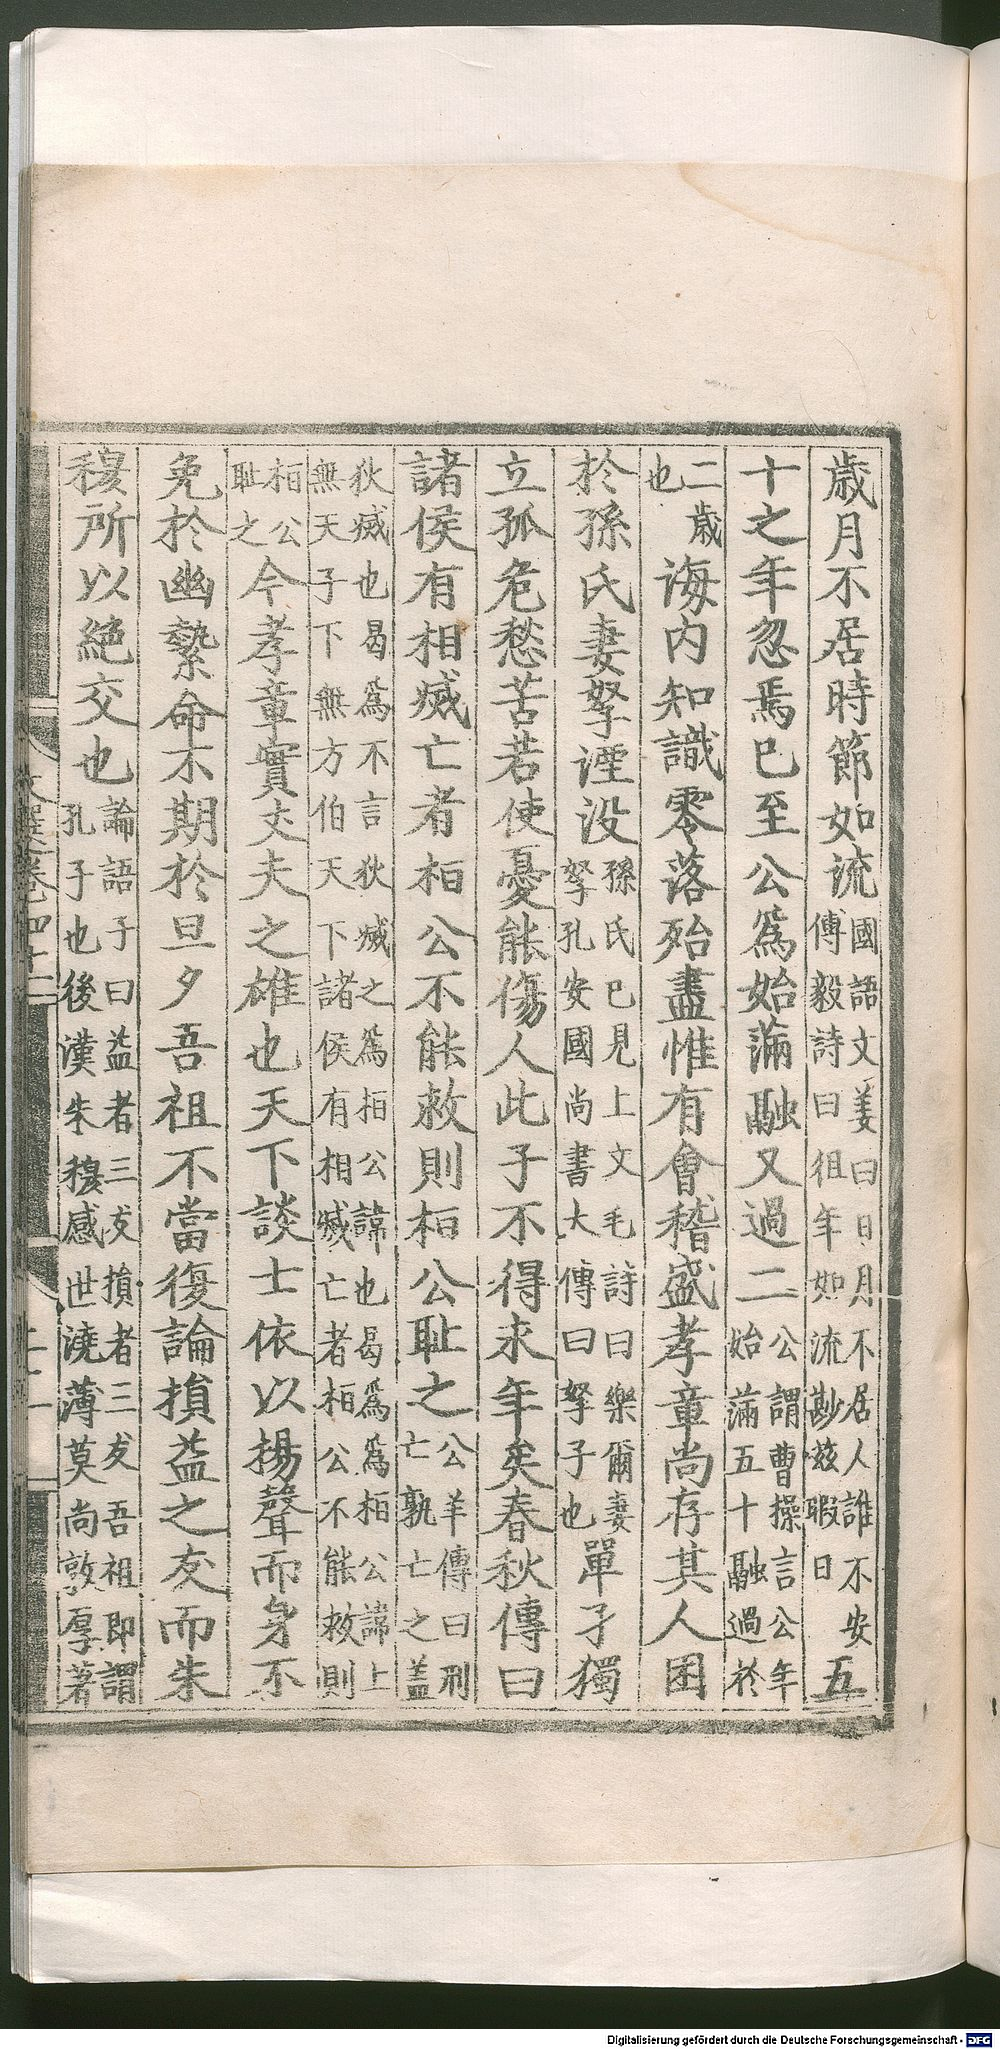 歳月不居時節如流國語文姜曰日月不居人誰不安傅毅詩曰徂年如流尠兹暇日五
十之年忽焉已至公爲始滿融又過二公謂曹操言公年始滿五十融過於
二歳也海内知識零落殆盡惟有會稽盛孝章尚存其人困
於孫氏妻孥湮没孫氏已見上文毛詩曰樂爾妻孥孔安國尚書大傳曰孥子也單孑獨
立孤危愁苦若使憂能傷人此子不得永年矣春秋傳曰
諸侯有相滅亡者桓公不能救則桓公耻之公羊傳曰刑亡孰亡之盖
狄滅也曷爲不言狄滅之爲桓公諱也曷爲爲桓公諱上無天子下無方伯天下諸侯有相滅亡者桓公不能救則
桓公耻之今孝章實丈夫之雄也天下談士依以揚聲而身不
免於幽縶命不期於旦夕吾祖不當復論損益之友而朱
穆所以絶交也論語子曰益者三友損者三友吾祖即謂孔子也後漢朱穆感世澆薄莫尚敦厚著
文選卷四十一
Digitalisierung gefördert durch die Deutsche Forschungsgemeinschaft - DFG